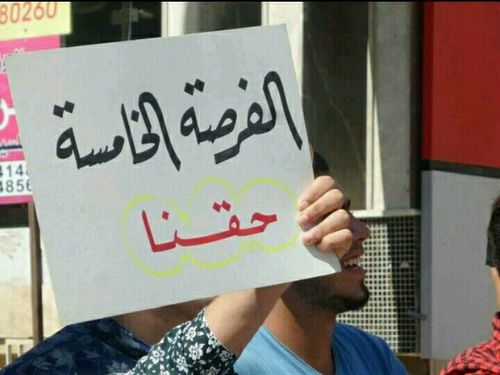 80260
الفرصة الخامسة
حقنا
4148
4856